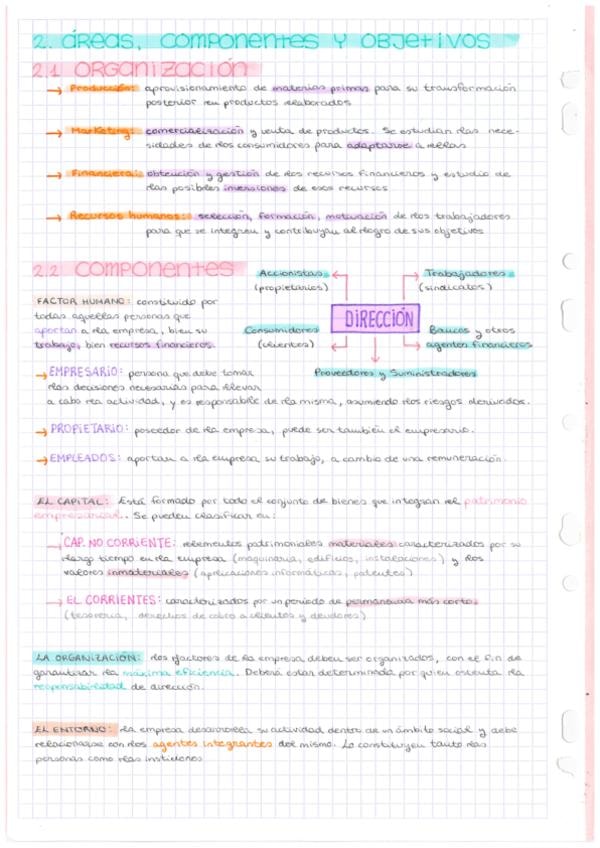 2. áreas, componentes y objetivos
2.1 ORGANIZACIÓN
→ Producción: aprovisionamiento de materias primas para su transformación
posterior en productos elaborados
→ Marketing: comercialización y venta de productos. Se estudian las nece-
sidades de los consumidores para adaptarse a ellas
→ Financiera: obtención y gestión de los recursos financieros y estudio de
las posibles inversiones de esos recursos
→ Recursos humanos: selección, formación, motivación de los trabajadores
para que se integren y contribuyan al logro de sus objetivos
2.2 componentes
Accionistas
(propietarios)
Trabajadores
(sindicatos)
DIRECCIÓN
Consumidores
(clientes)
Bancos y otros
agentes financieros
Proveedores y Suministradores
FACTOR HUMANO: constituido por
todas aquellas personas que
aportan a la empresa, bien su
trabajo, bien recursos financieros.
→ EMPRESARIO: persona que debe tomar
las decisiones necesarias para llevar
a cabo la actividad, y es responsable de la misma, asumiendo los riesgos derivados.
→ PROPIETARIO: poseedor de la empresa, puede ser también el empresario.
→ EMPLEADOS: aportan a la empresa su trabajo, a cambio de una remuneración.
EL CAPITAL: Está formado por todo el conjunto de bienes que integran el patrimonio
empresarial. Se pueden clasificar en:
→ CAP. NO CORRIENTE: elementos patrimoniales materiales caracterizados por su
largo tiempo en la empresa (maquinaria, edificios, instalaciones) y los
valores inmateriales (aplicaciones informáticas, patentes)
→ EL CORRIENTES: caracterizados por un periodo de permanencia más corto.
(tesorería, derechos de cobro a clientes y deudores)
LA ORGANIZACIÓN: los factores de la empresa deben ser organizados, con el fin de
garantizar la máxima eficiencia. Deberá estar determinada por quien ostenta la
responsabilidad de dirección.
EL ENTORNO: la empresa desarrolla su actividad dentro de un ámbito social y debe
relacionarse con los agentes integrantes del mismo. Lo constituyen tanto las
personas como las